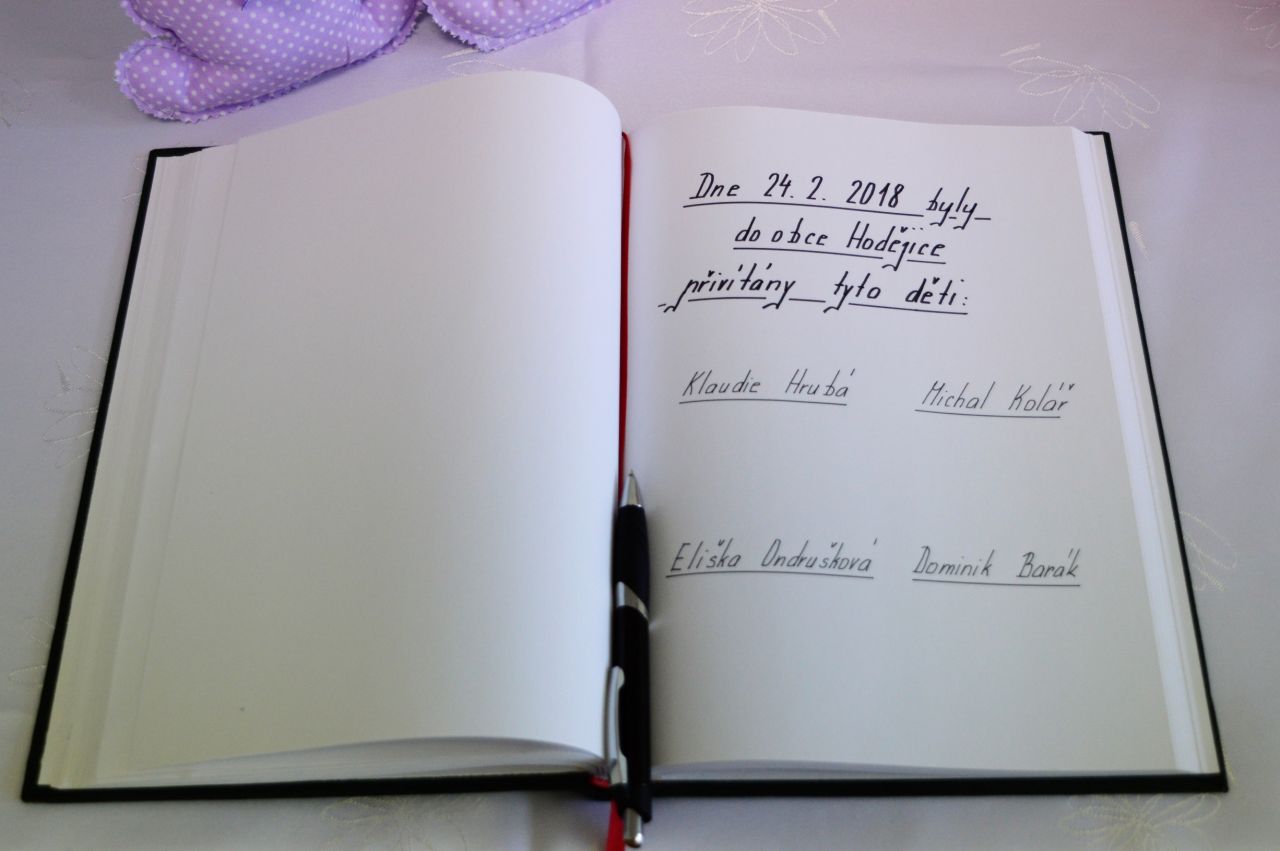 Dne 24. 2. 2018 byly
do obce Hodějice
přivítány tyto děti:
Klaudie Hrubá Michal Kolář
Eliška Ondrušková Dominik Barák